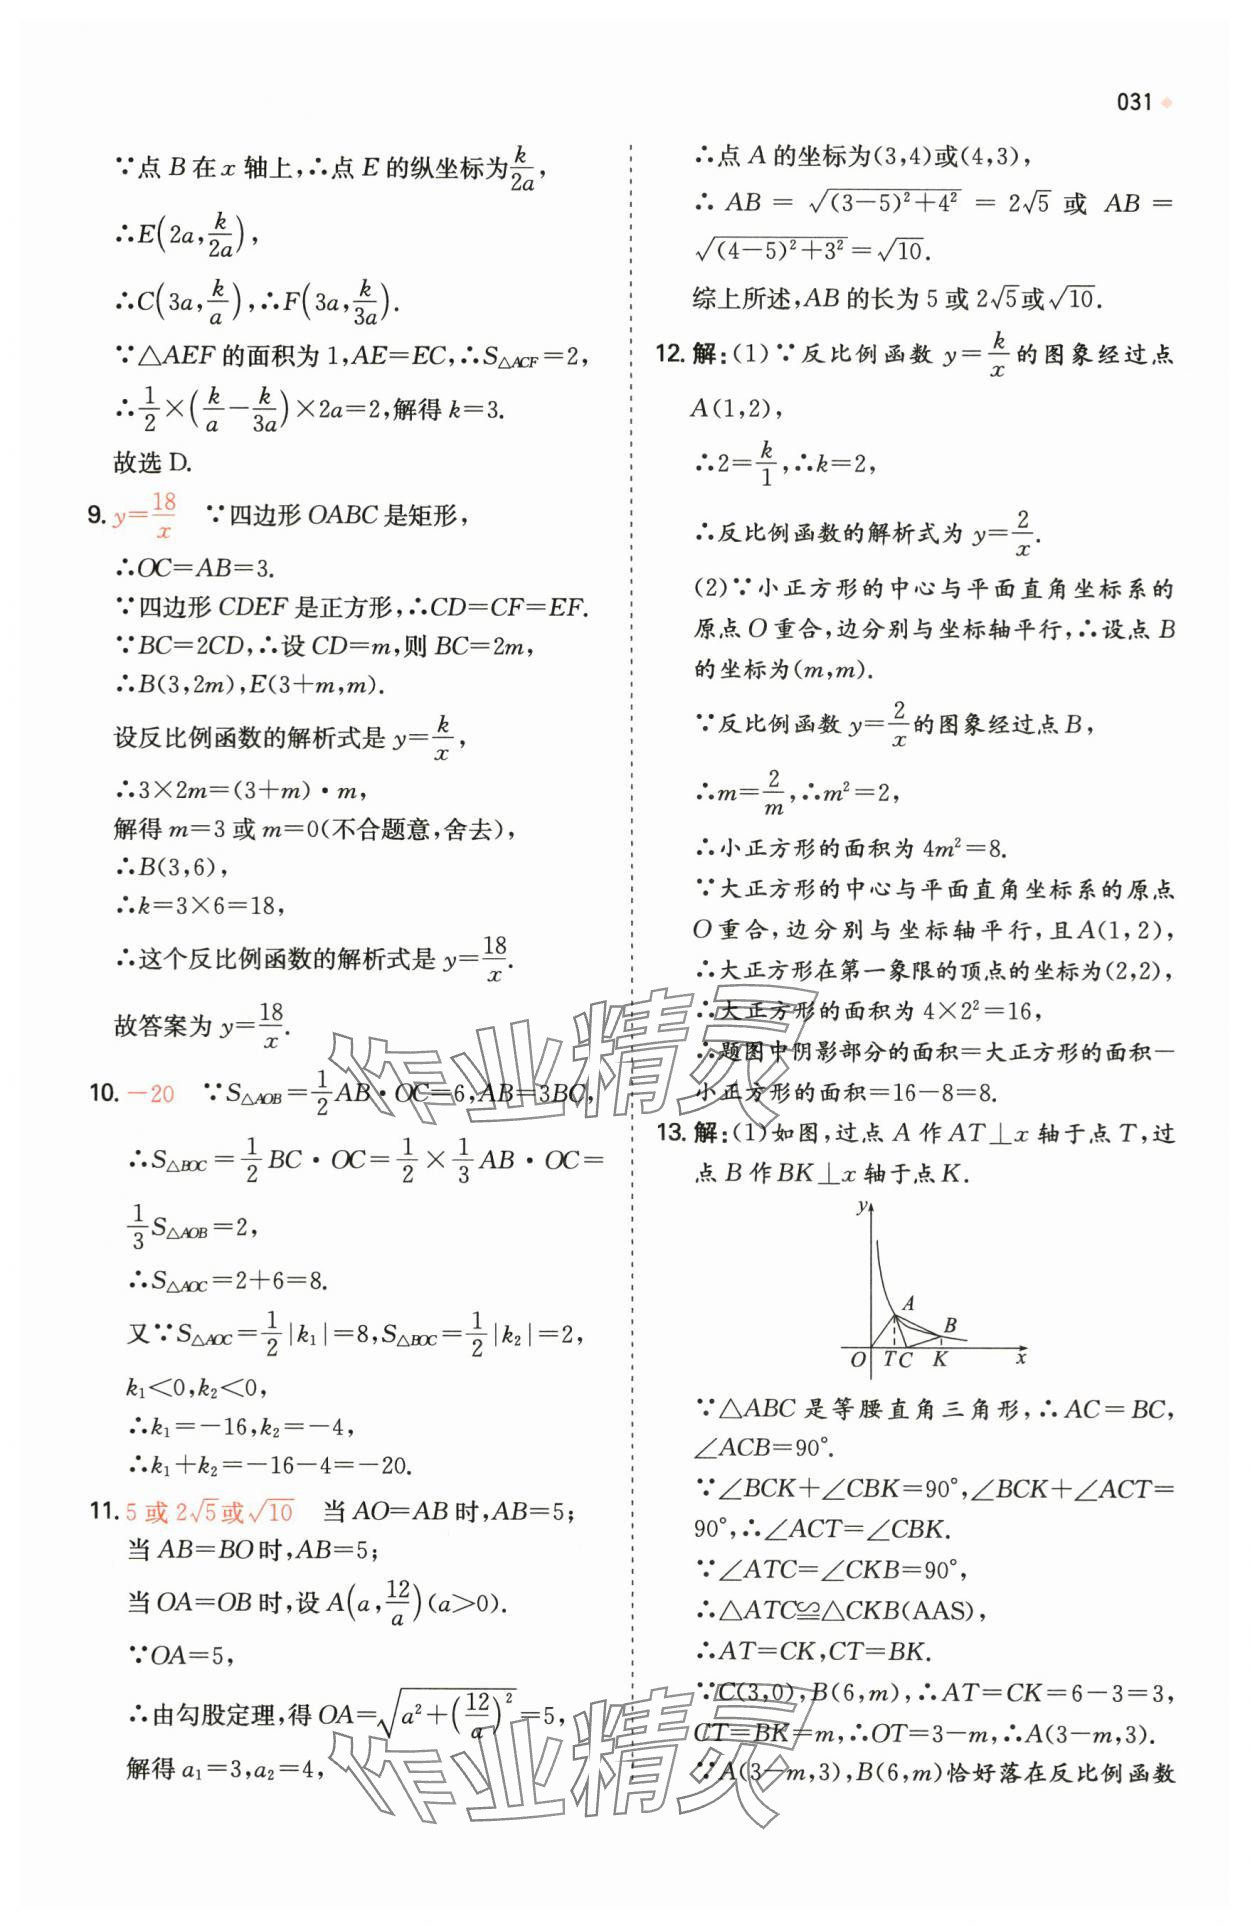 031
∵点 B 在 x 轴上,∴点 E 的纵坐标为k/(2a),
∴E(2a, k/(2a)),
∴C(3a, k/a),∴F(3a, k/(3a)).
∵△AEF 的面积为 1,AE=EC,∴S△ACF=2,
∴1/2×(k/a−k/(3a))×2a=2,解得 k=3.
故选 D.
9. y=18/x ∵四边形 OABC 是矩形,
∴OC=AB=3.
∵四边形 CDEF 是正方形,∴CD=CF=EF.
∵BC=2CD,∴设 CD=m,则 BC=2m,
∴B(3,2m),E(3+m,m).
设反比例函数的解析式是 y=k/x,
∴3×2m=(3+m)·m,
解得 m=3 或 m=0(不合题意,舍去),
∴B(3,6),
∴k=3×6=18,
∴这个反比例函数的解析式是 y=18/x.
故答案为 y=18/x.
10. −20 ∵S△AOB=1/2AB·OC=6,AB=3BC,
∴S△BOC=1/2BC·OC=1/2×1/3AB·OC=
1/3S△AOB=2,
∴S△AOC=2+6=8.
又∵S△AOC=1/2|k₁|=8,S△BOC=1/2|k₂|=2,
k₁<0,k₂<0,
∴k₁=−16,k₂=−4,
∴k₁+k₂=−16−4=−20.
11. 5 或 2√5或√10 当 AO=AB 时,AB=5;
当 AB=BO时,AB=5;
当 OA=OB 时,设 A(a, 12/a)(a>0).
∵OA=5,
∴由勾股定理,得 OA=√(a²+(12/a)²)=5,
解得 a₁=3,a₂=4,
∴点 A 的坐标为(3,4)或(4,3),
∴ AB = √((3−5)²+4²) = 2√5 或 AB =
√((4−5)²+3²)=√10.
综上所述,AB的长为 5 或 2√5或√10.
12. 解:(1)∵反比例函数 y=k/x 的图象经过点
A(1,2),
∴2=k/1,∴k=2,
∴反比例函数的解析式为 y=2/x.
(2)∵小正方形的中心与平面直角坐标系的
原点O重合,边分别与坐标轴平行,∴设点 B
的坐标为(m,m).
∵反比例函数 y=2/x的图象经过点B,
∴m=2/m,∴m²=2,
∴小正方形的面积为 4m²=8.
∵大正方形的中心与平面直角坐标系的原点
O重合,边分别与坐标轴平行,且A(1,2),
∴大正方形在第一象限的顶点的坐标为(2,2),
∴大正方形的面积为 4×2²=16,
∴题图中阴影部分的面积=大正方形的面积−
小正方形的面积=16−8=8.
13. 解:(1)如图,过点 A 作 AT⊥x 轴于点 T,过
点 B 作 BK⊥x 轴于点K.
y
A
B
O T C K x
∵△ABC 是等腰直角三角形,∴AC=BC,
∠ACB=90°.
∵∠BCK+∠CBK=90°,∠BCK+∠ACT=
90°,∴∠ACT=∠CBK.
∵∠ATC=∠CKB=90°,
∴△ATC≌△CKB(AAS),
∴AT=CK,CT=BK.
∵C(3,0),B(6,m),∴AT=CK=6−3=3,
CT=BK=m,∴OT=3−m,∴A(3−m,3).
∵A(3−m,3),B(6,m)恰好落在反比例函数
作业精灵
作业精灵